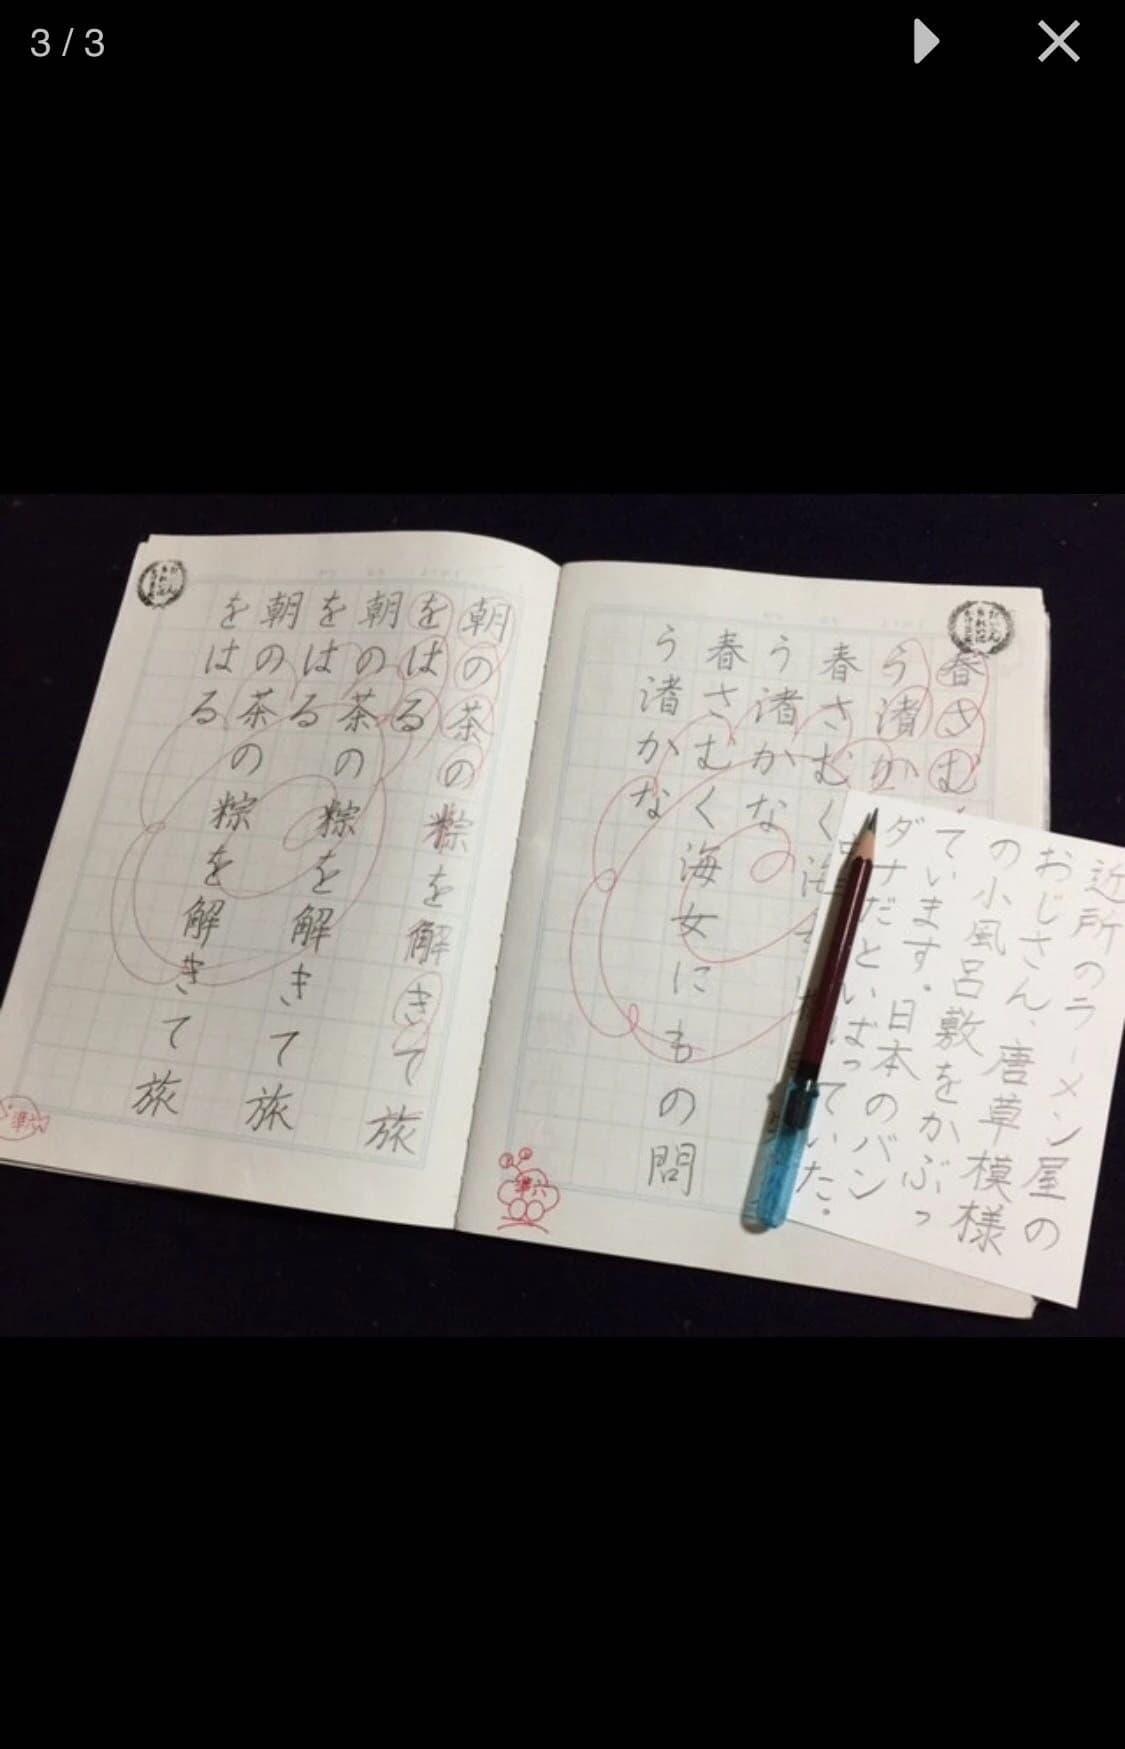 3 / 3
春さむ
う渚か
春さむく
う渚かな
春さむく海女にもの問
う渚かな
近所のラーメン屋の
おじさん、唐草模様
の小風呂敷をかぶっ
ています。日本のバン
ダナだといばっていた。
朝の茶の粽を解きて旅
をはる
朝の茶の粽を解きて旅
をはる
朝の茶の粽を解きて旅
をはる
準六
準六